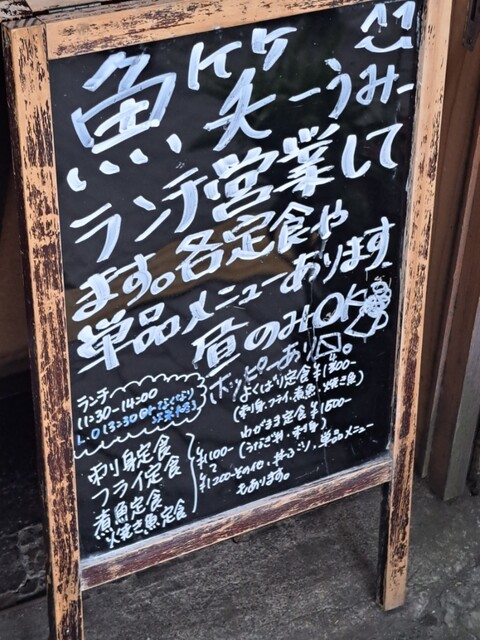 魚笑 ーうみー
ランチ営業して
ます。各定食や
単品メニューあります
昼のみOK
ホッピーあり〼。
ランチ
11:30-14:00
L.O 13:30
なくなり
刺身定食
フライ定食
煮魚定食
焼き魚定食
¥1100-
¥1200-
よくばり定食 ¥1300-
(刺身、フライ、煮魚、焼き魚)
わがまま定食 ¥1500-
(うなぎ、刺身)
その他、丼ぶり、単品メニュー
もあります。